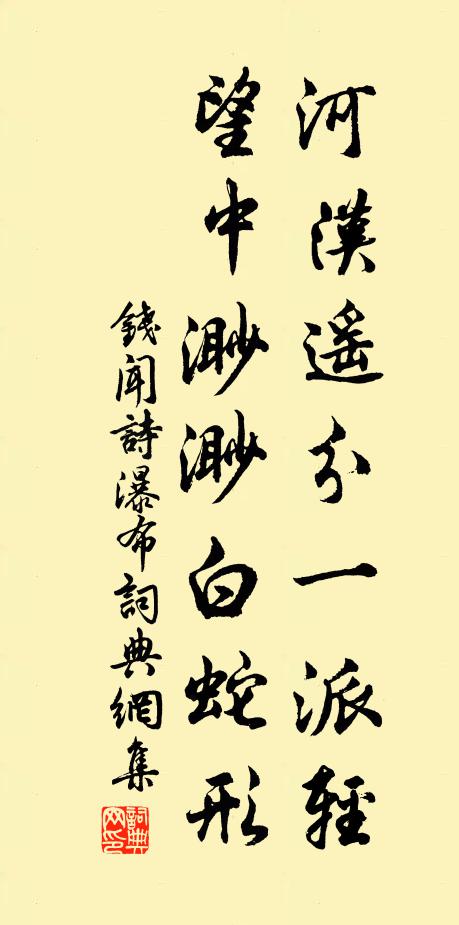 河漢遥分一派輕
望中渺渺白蛇形
錢聞詩瀑布詞典網集
詞典网印